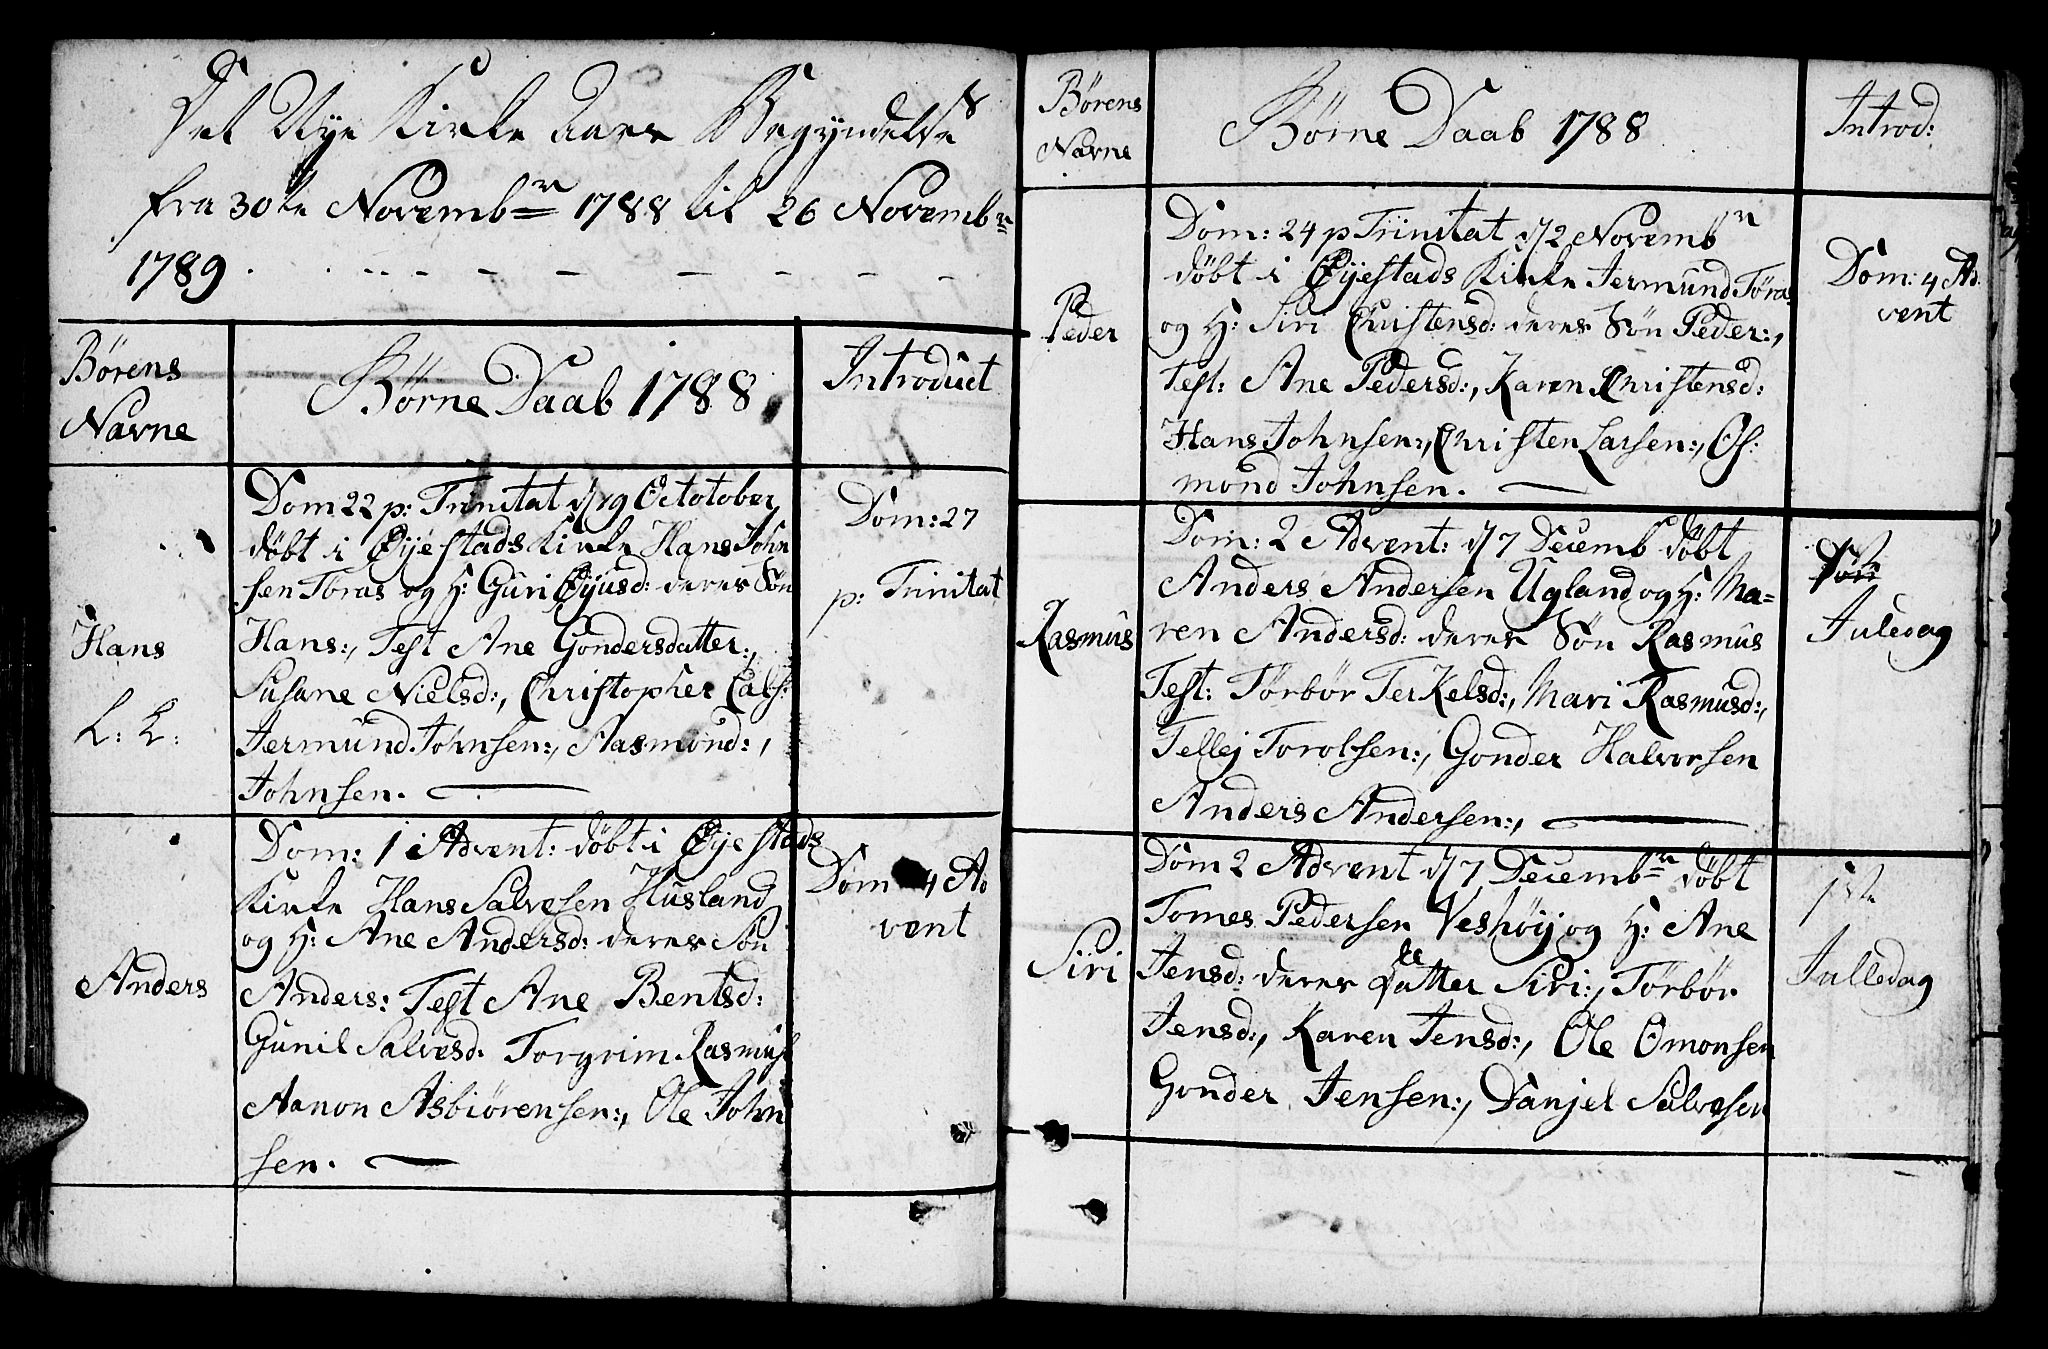 Det Nye Kirke Aars Begyndelse
fra 30te Novembr 1788 til 26 Novembr
1789.
Børens
Navne
Børne Daab 1788
Introduct
Hans
L: L:
Dom 22 p: Trinitat d/19 Octotober
døbt i Øyestads Kirke Hans John
sen Tøras og H: Guri Øyusd: deres Søn
Hans:, Test Ane Gondersdatter:,
Susane Nielsd:, Christopher Cals:
Jermund Johnsen:, Aasmond:,
Johnsen.
Dom: 27
p: Trinitat
Anders
Dom: 1 Advent: døbt i Øyestads
Kirke Hans Salvesen Husland
og H: Ane Andersd: deres Søn
Anders: Test Ane Bentsd:
Gunil Salvesd. Torgrim Rasmus
Aanon Asbiörensen:, Ole John
sen.
Dom 4 Ad
vent
Børens
Navne
Børne Daab 1788
Introd:
Peder
Dom: 24 p Trinitat d/2 Novembr
døbt i Øyestads Kirke Jermund Tøras
og H: Siri Christensd: deres Søn Peder:,
Test: Ane Pedersd:, Karen Christensd:
Hans Johnsen:, Christen Larsen:, Os:
mond Johnsen.
Dom: 4 Ad
vent
Rasmus
Dom: 2 Advent: d/7 Decemb døbt
Anders Andersen Ugland og H: Ma=
ren Andersd: deres Søn Rasmus
Test: Tørbør Terkelsd:, Mari Rasmusd:,
Tellej Torolsen:, Gonder Halvorsen
Anders Andersen:,
Juledag
Siri
Dom 2 Advent d/7 Decembr døbt
Tomes Pedersen Veshøy og H: Ane
Jensd: deres Datter Siri:, Tørbør
Jensd:, Karen Jensd:, Ole Omonsen
Gonder Jensen:, Danjel Salvesen
1ste
Julledag